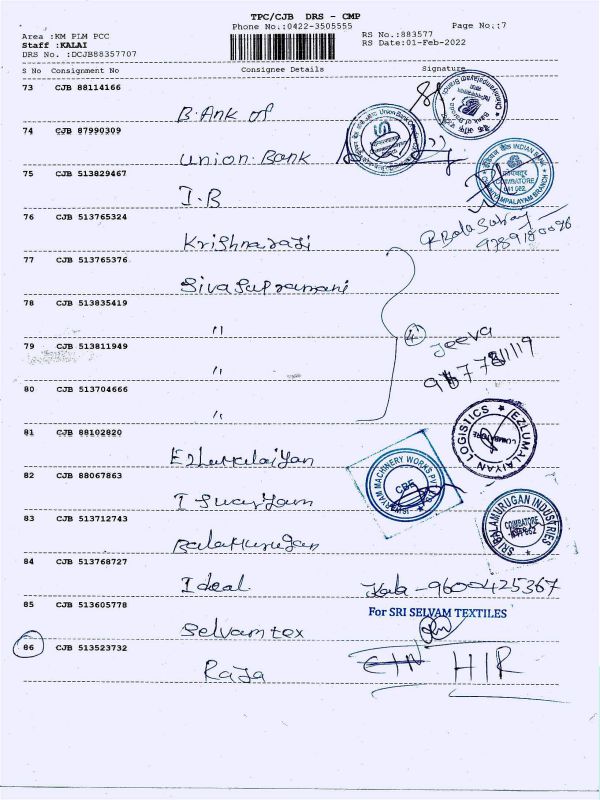 TPC/CJB DRS - CMP
Phone No.:0422-3505555 Page No.:7
Area :KM PLM PCC RS No.:883577
Staff :KALAI RS Date:01-Feb-2022
DRS No. :DCJB88357707
S No Consignment No Consignee Details Signature
73 CJB 88114166
Bank of
74 CJB 87990309
Union Bank
75 CJB 513829467
I.B
INDIAN BANK
COIMBATORE
641 062
76 CJB 513765324
Krishnaraji
77 CJB 513765376
Siva Supramani
78 CJB 513835419
"
4
Jeeva
79 CJB 513811949
"
80 CJB 513704666
"
81 CJB 88102820
EZLUMALAIYAN LOGISTICS
COIMBATORE
82 CJB 88067863
ISWARYAM MACHINERY WORKS PVT LTD
CBE
83 CJB 513712743
Balamurugan
SRI BALAMURUGAN INDUSTRIES
COIMBATORE
84 CJB 513768727
Ideal
Kala - 9600425367
85 CJB 513605778
Selvamtex
For SRI SELVAM TEXTILES
86 CJB 513523732
Raja
HIR